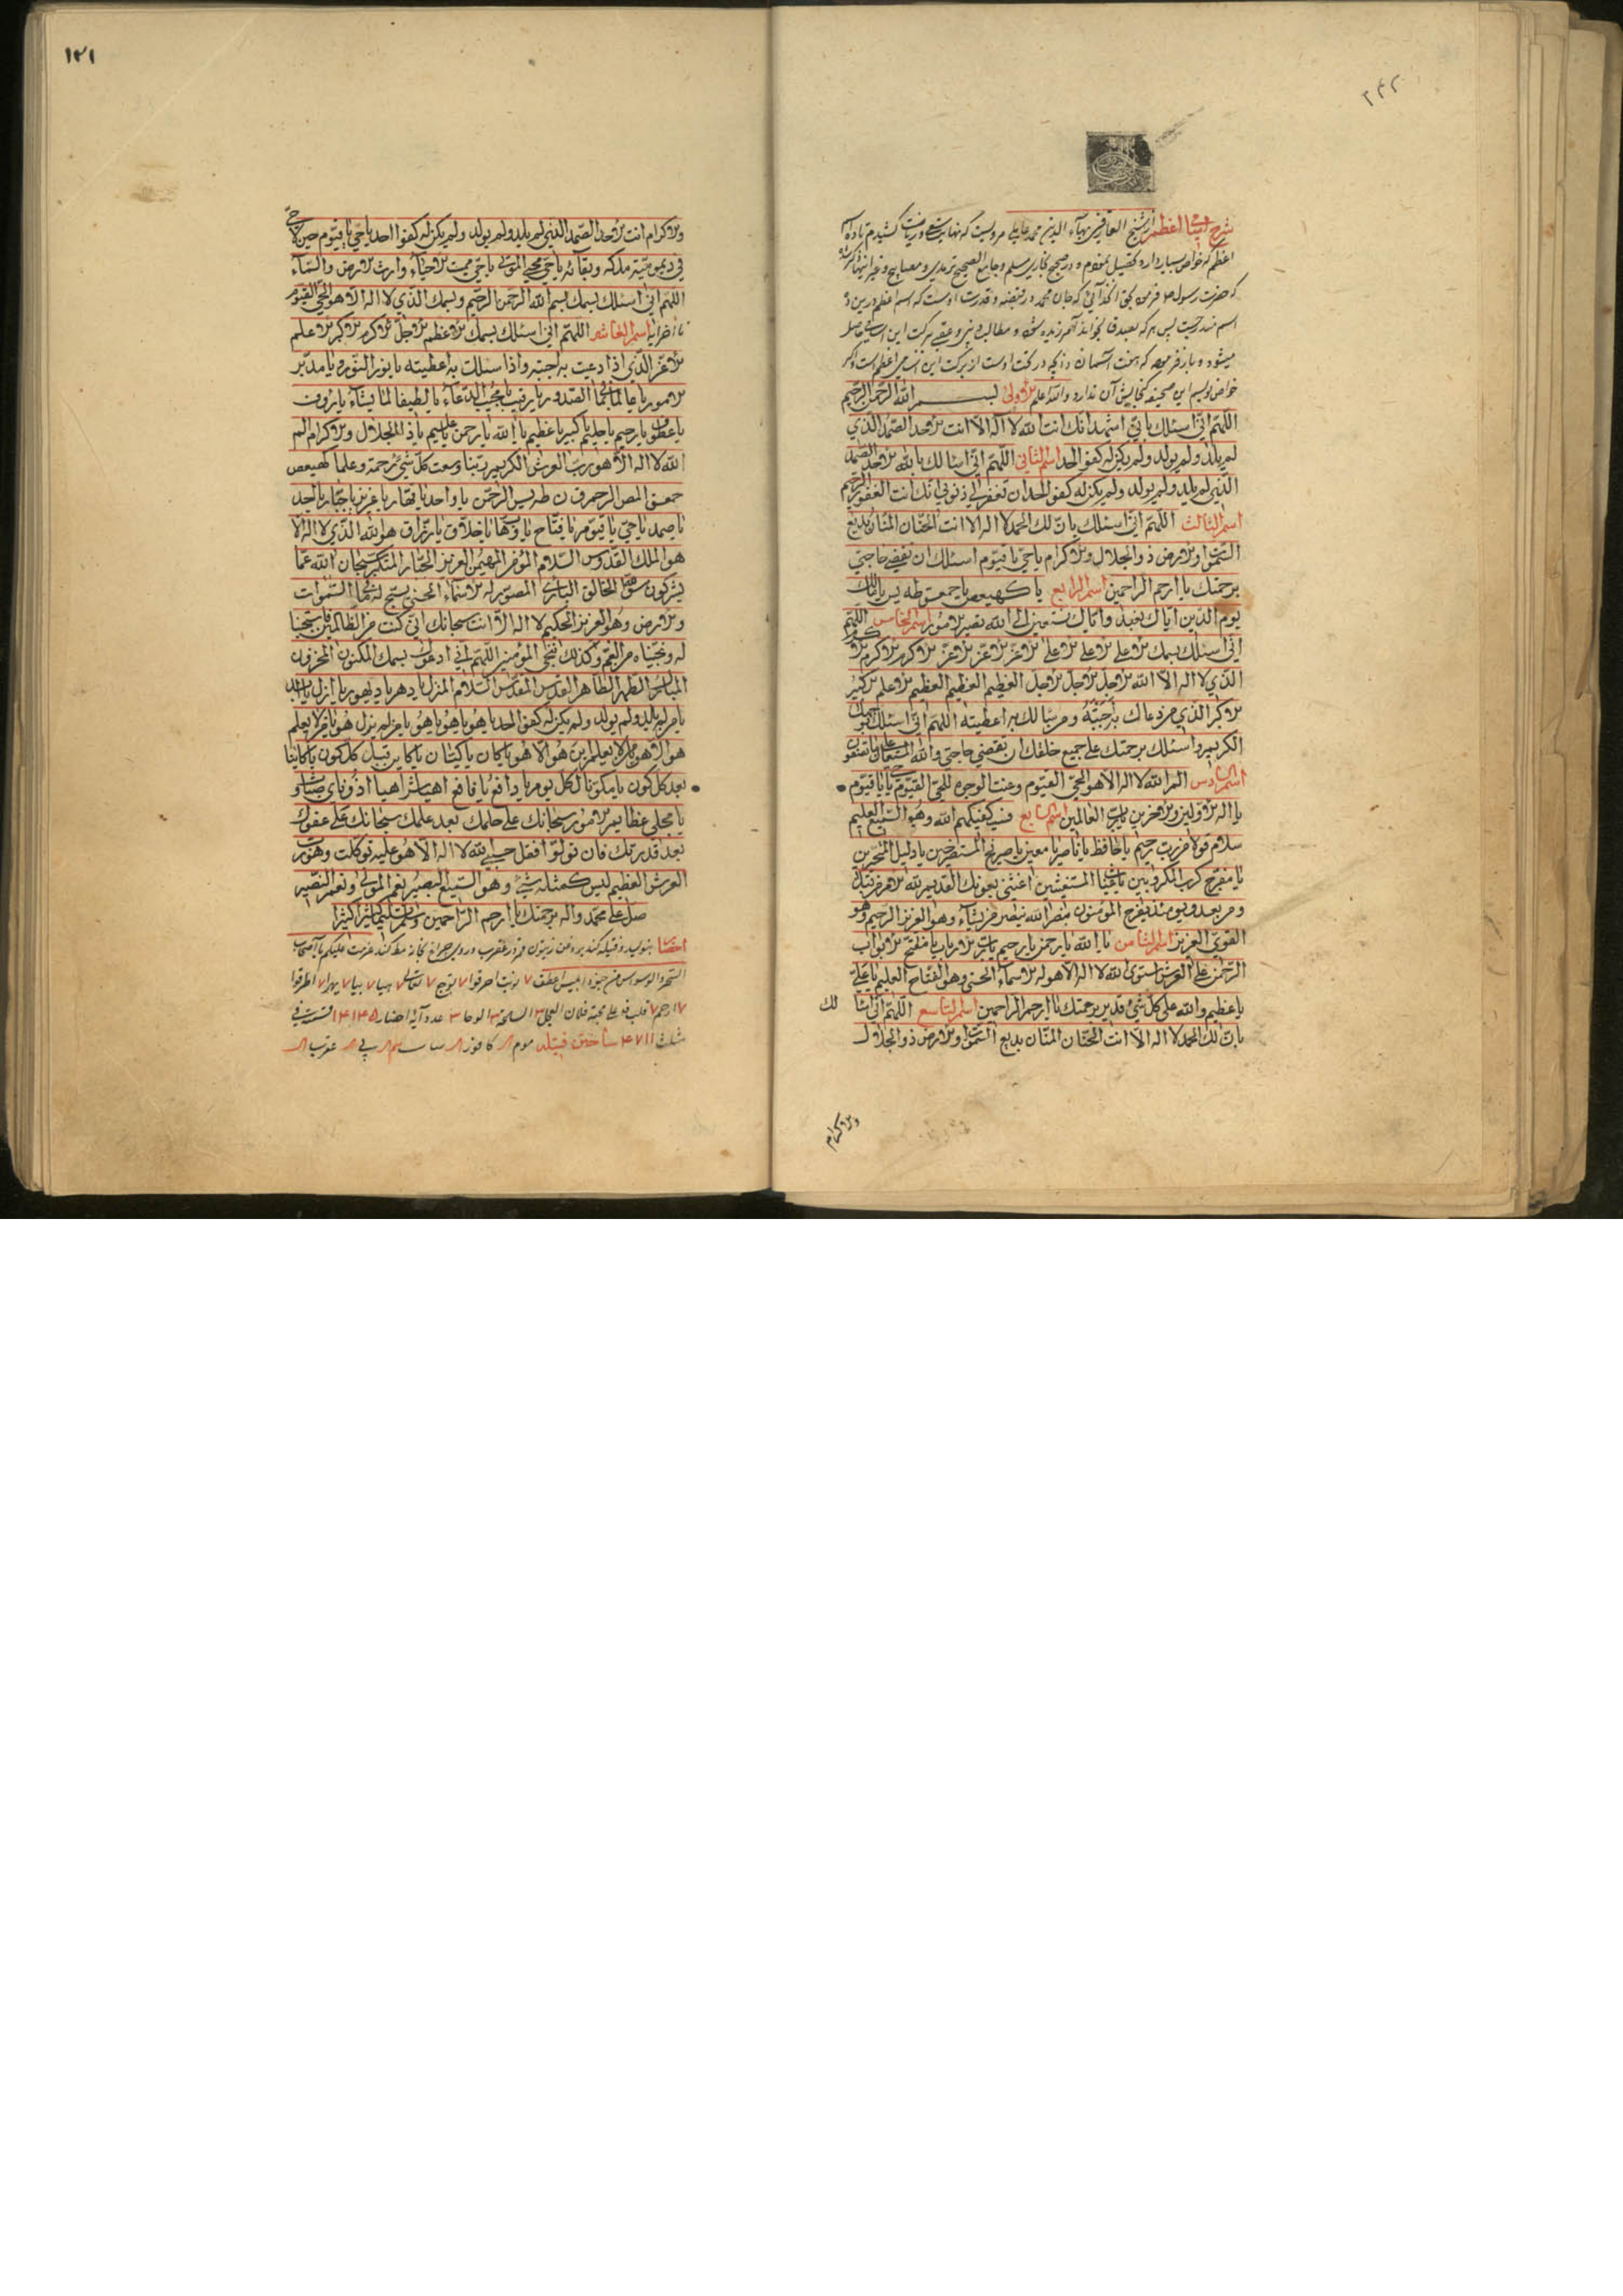 ۲۴۲
شرح اسما اعظم از شیخ العارفین بهاء الدین محمد عاملی مرویست که نهایت سعی و ریاضت کشیدم تا دوازده اسم
اعظم که خواص بسیار دارد تحصیل نمودم و در صحیح بخاری و مسلم و جامع الصحیح ترمدی و مصابیح و غیر اینها
که حضرت رسول ص فرمود بحق آنخدائی که جان محمد در قبضه قدرت اوست که اسم اعظم در این
اسم مندرجست پس هر که بصدق بخواند و مطالب دنیوی و عقبی برکت این اسامی حاصل
میشود و باز فرمود که هفت آسمان و آنچه در تحت اوست از برکت این اسامی اعظم است و اگر
خواص نویسم این صحیفه گنجایش آن ندارد والله اعلم الاولی بسم الله الرحمن الرحیم
اللهم انی اسئلک بانی اشهد انک انت الله لا اله الا انت الاحد الصمد الذی
لم یلد ولم یولد ولم یکن له کفوا احد اسم الثانی اللهم انی اسالک بالله الاحد الصمد
الذی لم یلد ولم یولد ولم یکن له کفوا احد ان تغفر لی ذنوبی انک انت الغفور الرحیم
اسم الثالث اللهم انی اسئلک بان لک الحمد لا اله الا انت الحنان المنان بدیع
السموات والارض ذوالجلال والاکرام یا حی یا قیوم اسئلک ان تقضی حاجتی
برحمتک یا ارحم الراحمین اسم الرابع یا کهیعص یا حمعسق طه یس یا مالک
یوم الدین ایاک نعبد وایاک نستعین الی الله تصیر الامور اسم الخامس اللهم
انی اسئلک بسمک الاعلی الاعلی الاعلی الاعز الاعز الاعز الاکرم الاکرم الاکرم
الذی لا اله الا الله الاجل الاجل الاجل العظیم العظیم العظیم الاعلم الاکبر
الاکبر الذی من دعاک به اجبته ومن سالک به اعطیته اللهم انی اسئلک بوجهک
الکریم واسئلک برحمتک علی جمیع خلقک ان تقضی حاجتی والله المستعان علی ما تصفون
اسم السادس الم الله لا اله الا هو الحی القیوم وعنت الوجوه للحی القیوم یا حی یا قیوم
یا اله الاولین والاخرین یا رب العالمین اسم السابع فسیکفیکهم الله وهو السمیع العلیم
سلام قولا من رب رحیم یا حافظ یا ناصر یا معین یا صریخ المستصرخین یا دلیل المتحیرین
یا مفرج کرب المکروبین یا غیاث المستغیثین اغثنی بعونک القدیم لله الامر من قبل
ومن بعد ویومئذ یفرح المؤمنون بنصر الله ینصر من یشاء وهو العزیز الرحیم وهو
القوی العزیز اسم الثامن یا الله یا رحمن یا رحیم یا رب الارباب یا مفتح الابواب
الرحمن علی العرش استوی الله لا اله الا هو له الاسماء الحسنی وهو الفتاح العلیم یا علی
یا عظیم والله علی کل شیء قدیر برحمتک یا ارحم الراحمین اسم التاسع اللهم انی اسا لک
بان لک الحمد لا اله الا انت الحنان المنان بدیع السموات والارض ذوالجلال
والاکرام
۱۲۱
والاکرام انت الاحد الصمد الذی لم یلد ولم یولد ولم یکن له کفوا احد یا حی یا قیوم حین لا حی
فی دیمومیة ملکه وبقائه یا حی محیی الموتی یا حی ممیت الاحیاء وارث الارض والسماء
اللهم انی اسئلک بسمک بسم الله الرحمن الرحیم وبسمک الذی لا اله الا هو الحی القیوم
تا آخر ایا اسم العاشر اللهم انی اسئلک بسمک الاعظم الاجل الاکرم الاکبر الاعلم
الاعز الذی اذا دعیت به اجبته واذا سئلت به اعطیته یا نور النور یا مدبر
الامور یا عالما بما الصدور یا رقیب یا مجیب الدعاء یا لطیفا لما یشاء یا رؤف
یا عطوف یا رحیم یا حلیم یا کبیر یا عظیم یا الله یا رحمن یا علیم یا ذالجلال والاکرام الم
الله لا اله الا هو رب العرش الکریم ربنا وسعت کل شیء رحمة وعلما کهیعص
حمعسق المص الر حم ق ن طه یس الرحمن یا واحد یا قهار یا عزیز یا جبار یا احد
یا صمد یا حی یا قیوم یا فتاح یا وهاب یا خلاق یا رزاق هو الله الذی لا اله الا
هو الملک القدوس السلام المؤمن المهیمن العزیز الجبار المتکبر سبحان الله عما
یشرکون هو الله الخالق الباری المصور له الاسماء الحسنی یسبح له ما فی السموات
والارض وهو العزیز الحکیم لا اله الا انت سبحانک انی کنت من الظالمین فاستجبنا
له ونجیناه من الغم وکذلک ننجی المؤمنین اللهم انی ادعوک بسمک المکنون المخزون
المبارک الطهر الطاهر القدس المقدس السلام المنزل یا دهر یا دیهور یا ازل یا ابد
یا من لم یلد ولم یولد ولم یکن له کفوا احد یا هو یا هو یا هو یا من لم یزل هو یا من لا یعلم
هو الا هو یا من لا یعلم این هو الا هو یا کان یا کینان یا کاین قبل کل کون یا کاینا
بعد کل کون یا مکونا لکل یوم یا دافع یا فافع اهیا شراهیا ادونای صباو
یا مجلی عظایم الامور سبحانک علی حلمک بعد علمک سبحانک علی عفوک
بعد قدرتک فان تولوا فقل حسبی الله لا اله الا هو علیه توکلت وهو رب
العرش العظیم لیس کمثله شیء وهو السمیع البصیر نعم المولی ونعم النصیر
صل علی محمد وآله برحمتک یا ارحم الراحمین وسلم تسلیما کثیرا کثیرا